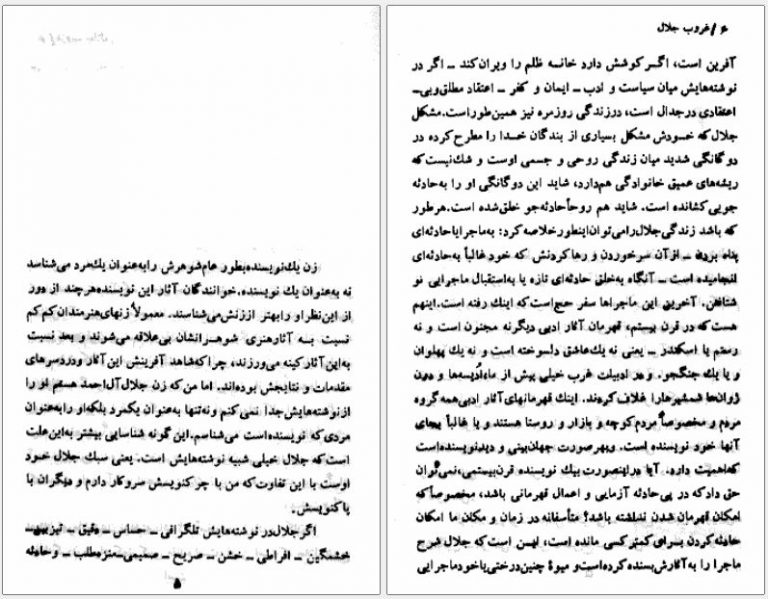 زن یك نویسنده بطور عام شوهرش را به عنوان یك مرد می‌شناسد
نه به عنوان یك نویسنده. خوانندگان آثار این نویسنده هر چند از دور
از این نظر او را بهتر از زنش می‌شناسند. معمولاً زنهای هنرمندان کم کم
نسبت به آثار هنری شوهرانشان بی‌علاقه می‌شوند و بعد نسبت
به این آثار کینه می‌ورزند، چرا که شاهد آفرینش این آثار و دردسرهای
مقدمات و نتایجش بوده‌اند. اما من که زن جلال آل‌احمد هستم او را
از نوشته‌هایش جدا نمی‌کنم و نه تنها به عنوان یکمرد بلکه او را به عنوان
مردی که نویسنده است می‌شناسم. این گونه شناسایی بیشتر به این علت
است که جلال خیلی شبیه نوشته‌هایش است. یعنی سبك جلال خود
اوست با این تفاوت که من با چرکنویسش سروکار دارم و دیگران با
پاکنویسش.
اگر جلال در نوشته‌هایش تلگرافی ــ حساس ــ دقیق ــ تیزبین ــ
خشمگین ــ افراطی ــ خشن ــ صریح ــ صمیمی ــ منزه‌طلب ــ و حادثه
۵
۶ / غروب جلال
آفرین است، اگر کوشش دارد خانه ظلم را ویران کند ــ اگر در
نوشته‌هایش میان سیاست و ادب ــ ایمان و کفر ــ اعتقاد مطلق و بی‌ــ
اعتقادی در جدال است، در زندگی روزمره نیز همین‌طور است. مشکل
جلال که خودش مشکل بسیاری از بندگان خدا را مطرح کرده در
دوگانگی شدید میان زندگی روحی و جسمی اوست و شك نیست که
ریشه‌های عمیق خانوادگی هم دارد، شاید این دوگانگی او را به حادثه
جویی کشانده است. شاید هم روحاً حادثه‌جو خلق شده است. هر طور
که باشد زندگی جلال را می‌توان اینطور خلاصه کرد: به ماجرا یا حادثه‌ای
پناه بردن ــ از آن سرخوردن و رها کردنش که خود غالباً به حادثه‌ای
انجامیده است ــ آنگاه به خلق حادثه‌ای تازه یا به استقبال ماجرایی نو
شتافتن. آخرین این ماجراها سفر حج است که اینك رفته است. اینهم
هست که در قرن بیستم، قهرمان آثار ادبی دیگر نه مجنون است و نه
رستم یا اسکندر ــ یعنی نه یك عاشق دلسوخته است و نه یك پهلوان
و یا یك جنگجو. و در ادبیات غرب خیلی پیش از ما، ادیسه‌ها و دون
ژوان‌ها شمشیرها را غلاف کردند. اینك قهرمانهای آثار ادبی همه گروه
مردم و مخصوصاً مردم کوچه و بازار و روستا هستند و یا غالباً بجای
آنها خود نویسنده است. و بهر صورت جهان‌بینی و دید نویسنده است
که اهمیت دارد. آیا در اینصورت بیك نویسنده قرن بیستمی، نمی‌توان
حق داد که در پی حادثه آزمایی و اعمال قهرمانی باشد، مخصوصاً که
امکان قهرمان شدن نداشته باشد؟ متأسفانه در زمان و مکان ما امکان
حادثه کردن برای کمتر کسی مانده است، این است که جلال شرح
ماجرا را به آثارش بسنده کرده است و میوهٔ چنین درختی یا خود ماجرایی